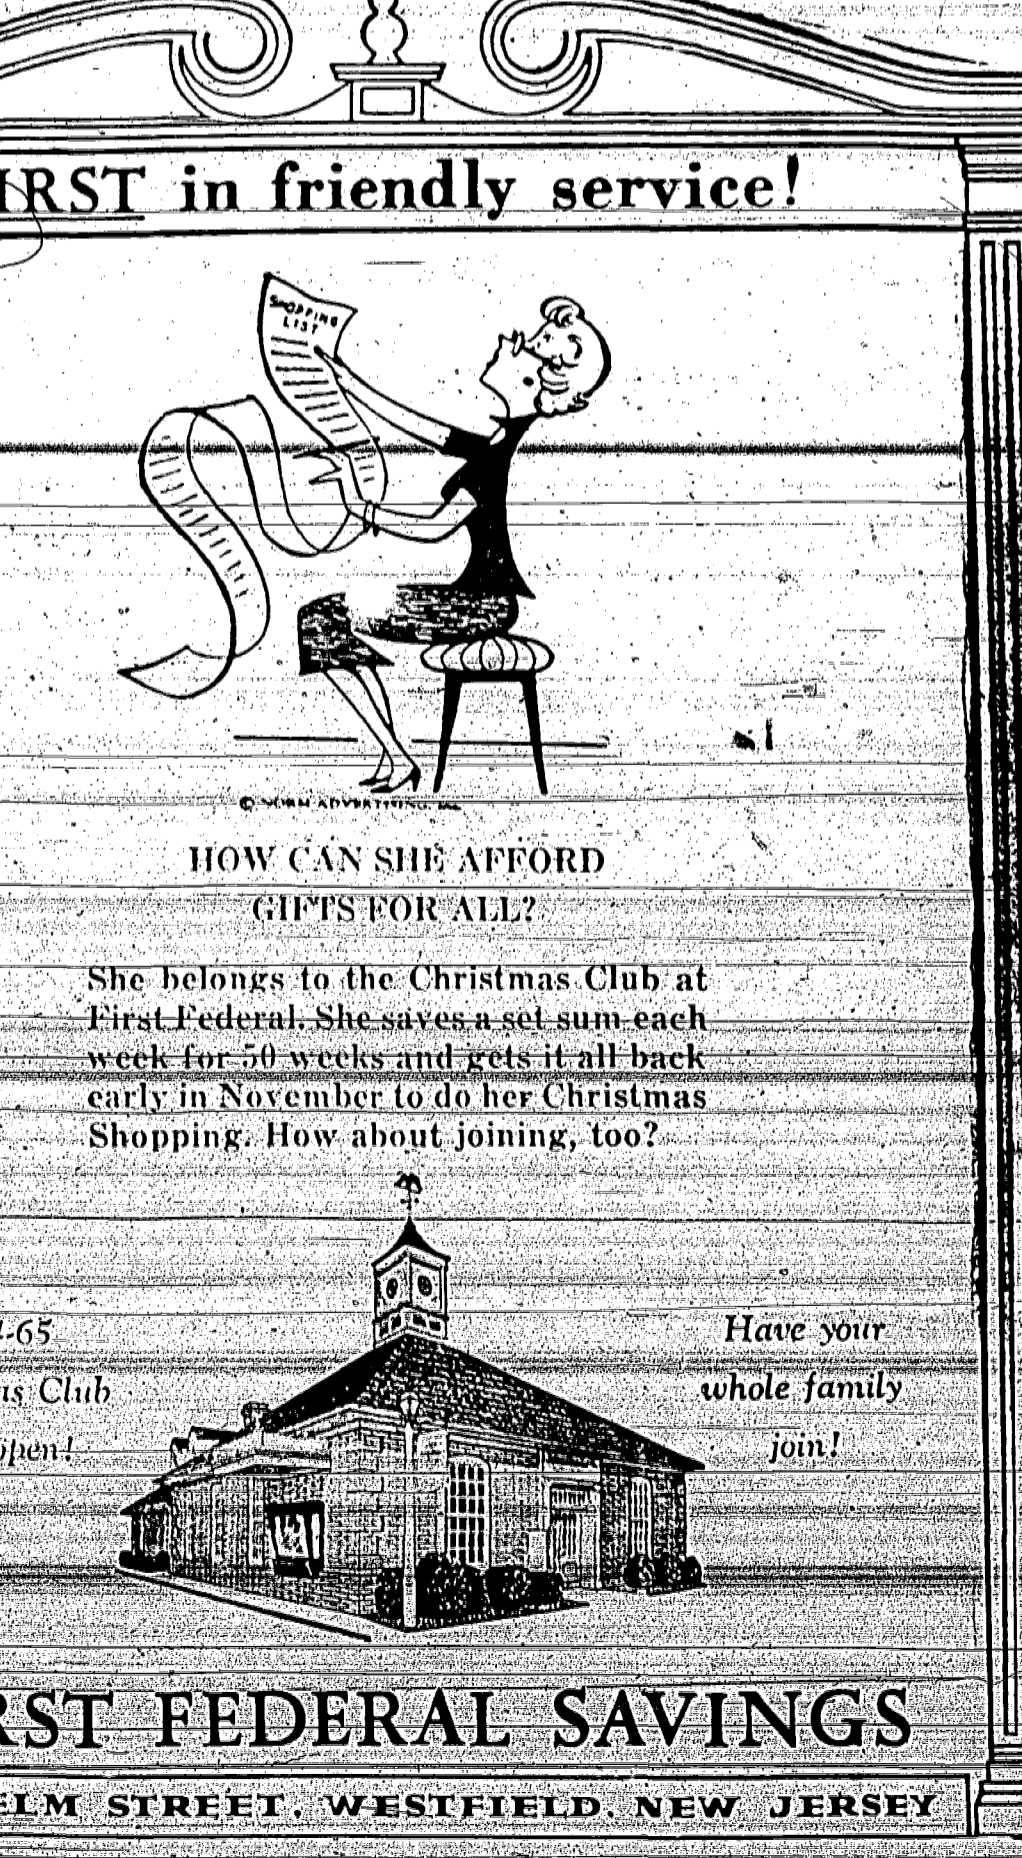 IRST in friendly service!
SHOPPING
LIST
© NORM ADVERTISING, INC.
HOW CAN SHE AFFORD
GIFTS FOR ALL?
She belongs to the Christmas Club at
First Federal. She saves a set sum each
week for 50 weeks and gets it all back
early in November to do her Christmas
Shopping. How about joining, too?
-65
as Club
open!
Have your
whole family
join!
RST FEDERAL SAVINGS
ELM STREET, WESTFIELD, NEW JERSEY